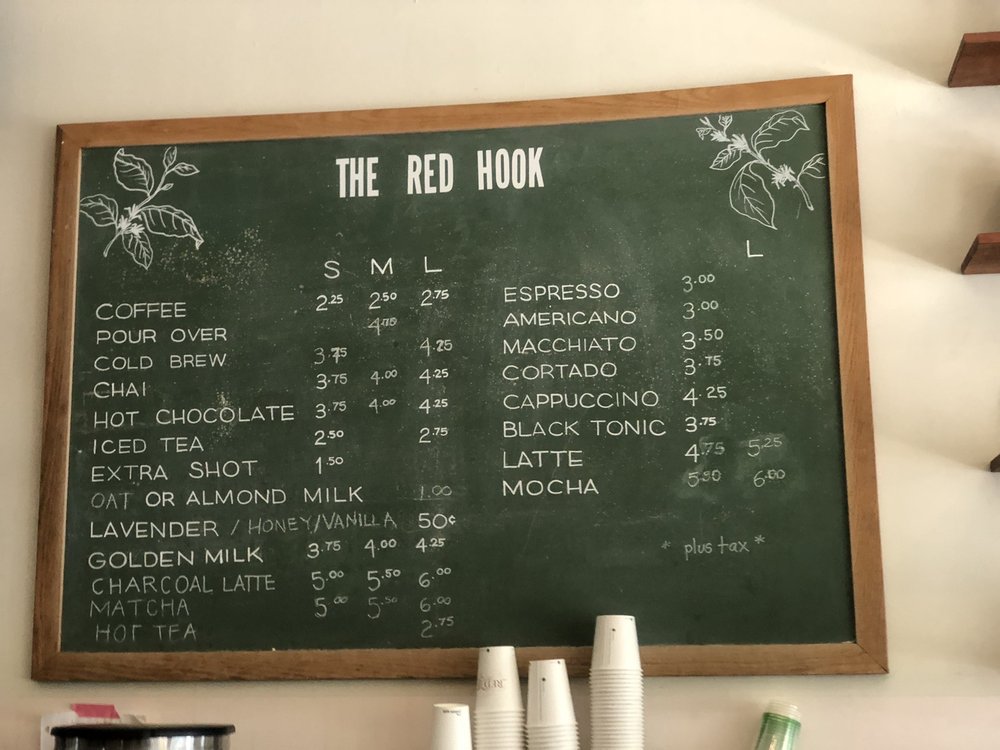 THE RED HOOK
S M L
COFFEE 2.25 2.50 2.75
POUR OVER 4.75
COLD BREW 3.75 4.25
CHAI 3.75 4.00 4.25
HOT CHOCOLATE 3.75 4.00 4.25
ICED TEA 2.50 2.75
EXTRA SHOT 1.50
OAT OR ALMOND MILK 1.00
LAVENDER / HONEY/VANILLA 50¢
GOLDEN MILK 3.75 4.00 4.25
CHARCOAL LATTE 5.00 5.50 6.00
MATCHA 5.00 5.50 6.00
HOT TEA 2.75
L
ESPRESSO 3.00
AMERICANO 3.00
MACCHIATO 3.50
CORTADO 3.75
CAPPUCCINO 4.25
BLACK TONIC 3.75
LATTE 4.75 5.25
MOCHA 6.00
* plus tax *